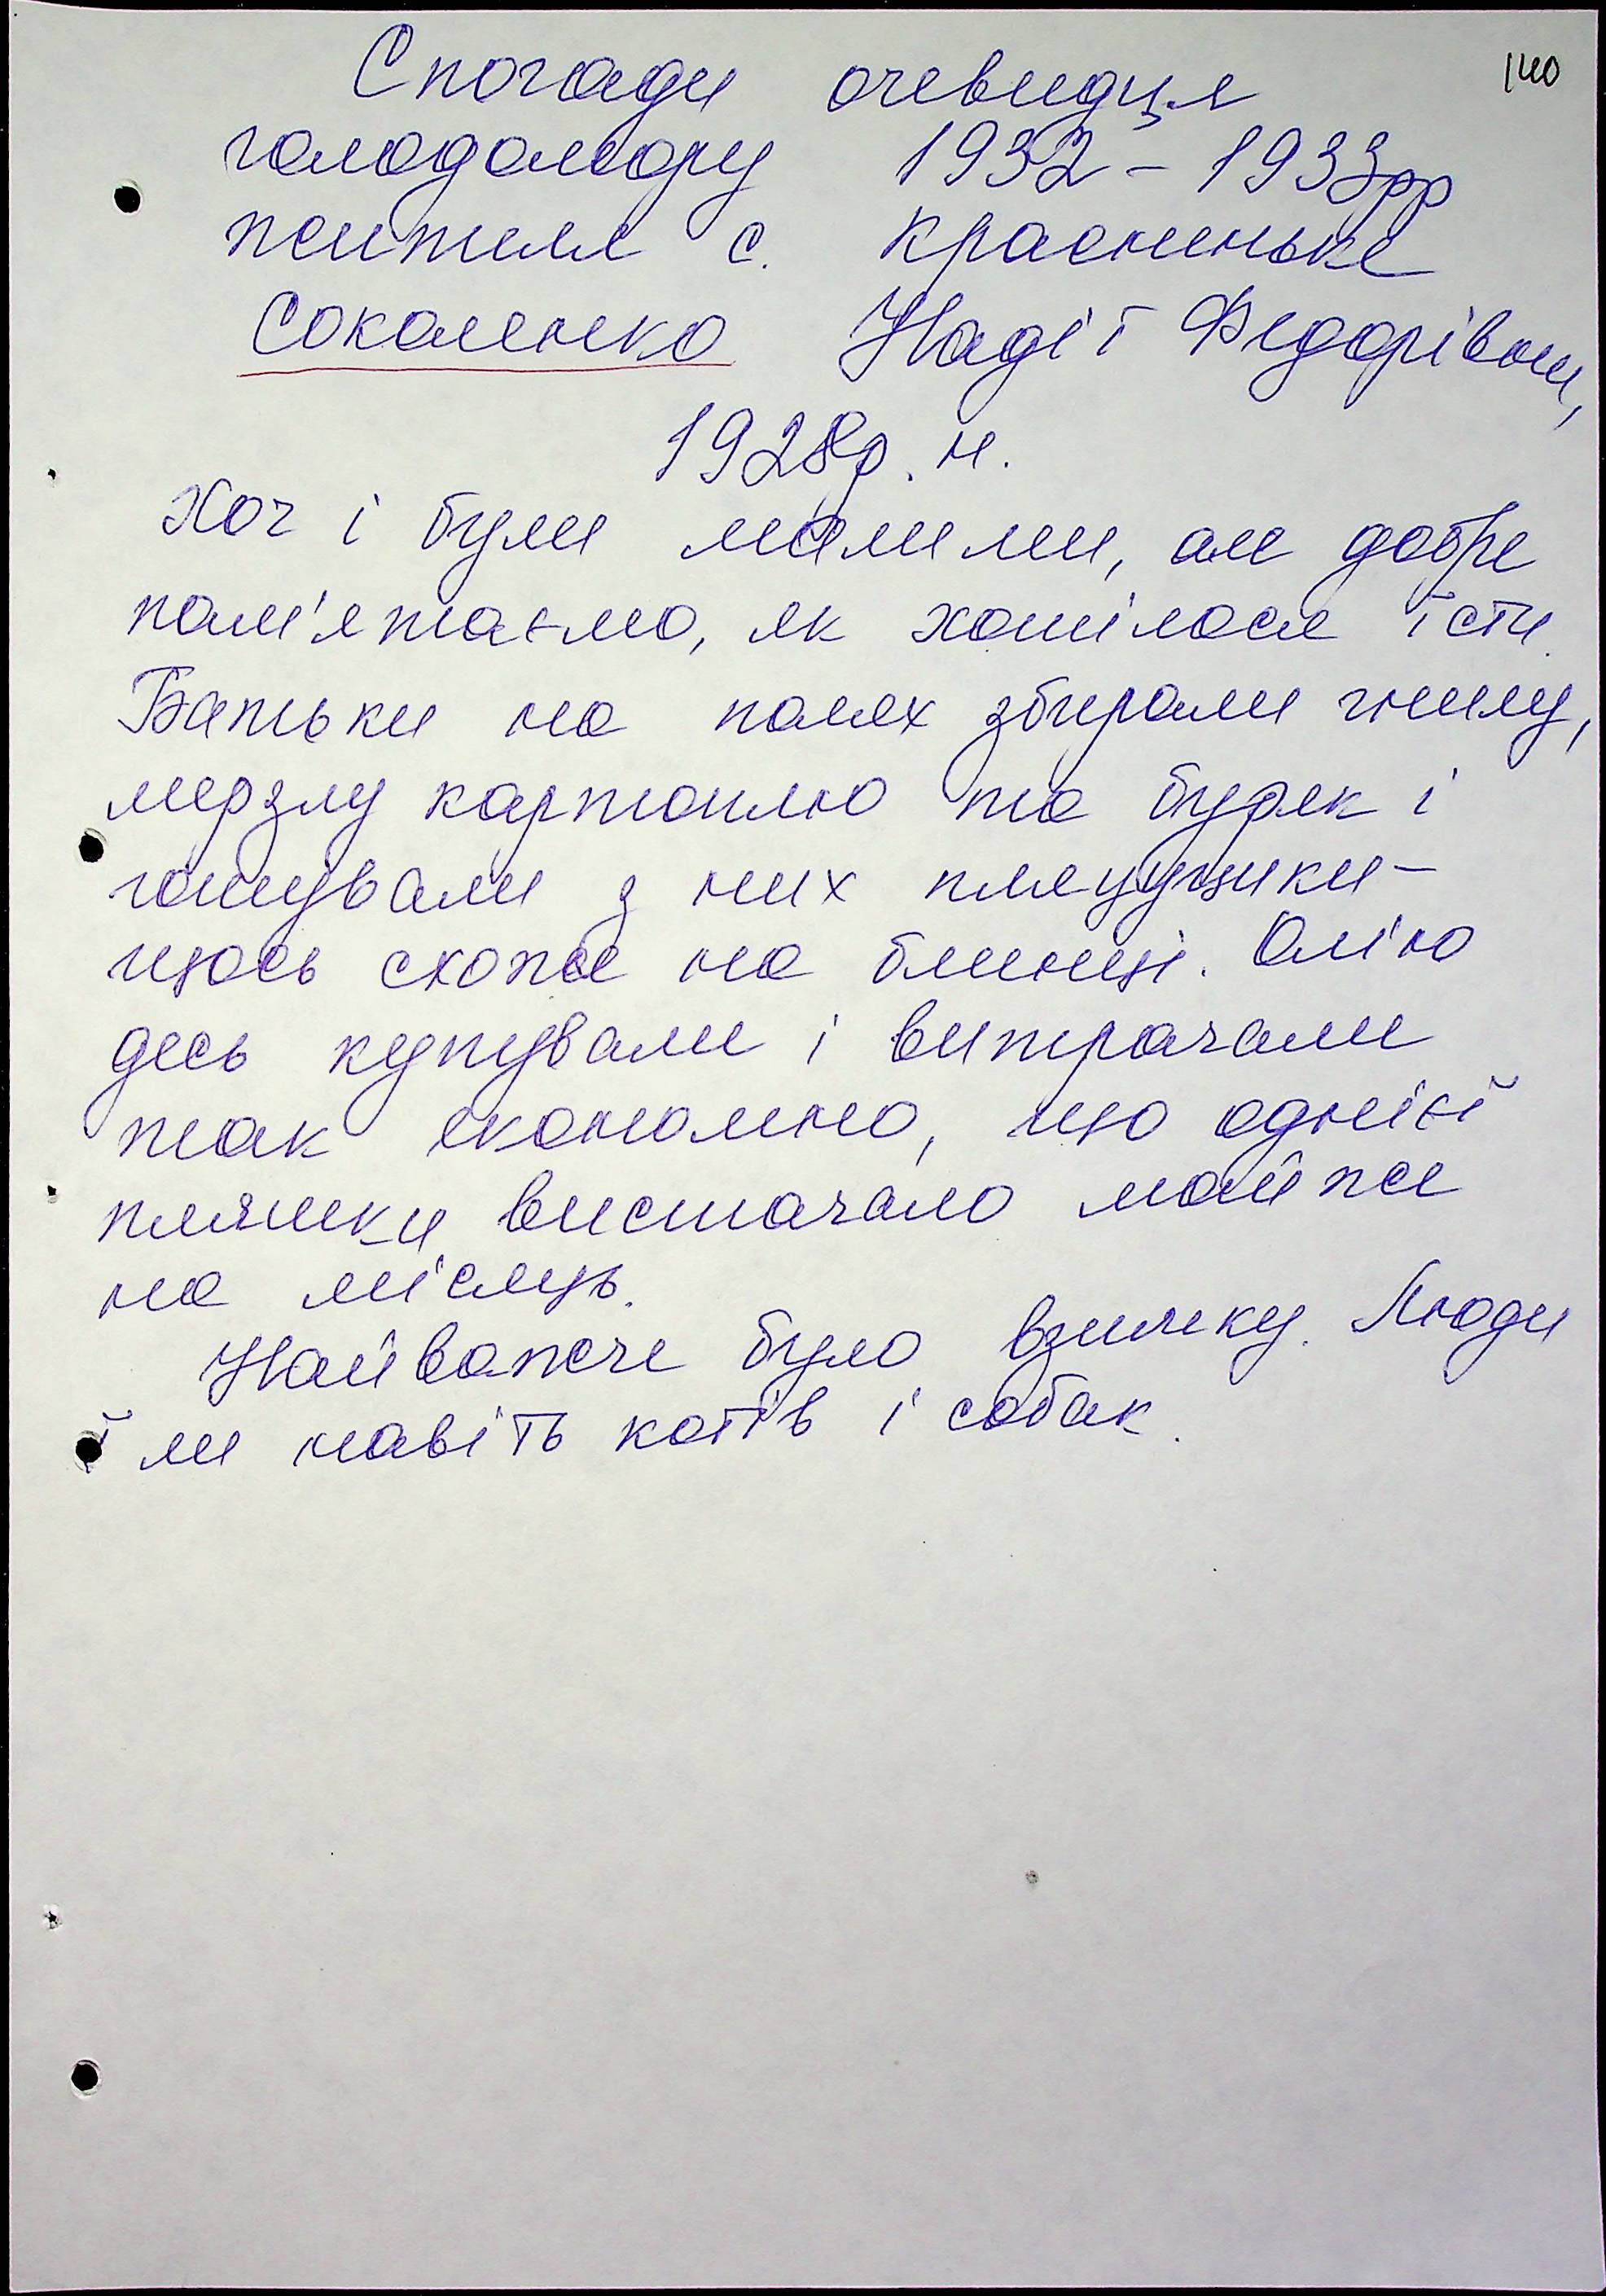 140
Спогади очевидця
голодомору 1932-1933рр
жителя с. Красненьке
Соколенко Надії Федорівни,
1928р. н.
Хоч і були малими, але добре
пам'ятаємо, як хотілося їсти.
Батьки на полях збирали гнилу,
мерзлу картоплю та буряк і
готували з них пляцущики -
щось схоже на блинці. Олію
десь купували і витрачали
так економно, що однієї
пляшки вистачало майже
на місяць.
Найважче було взимку. Люди
їли навіть котів і собак.